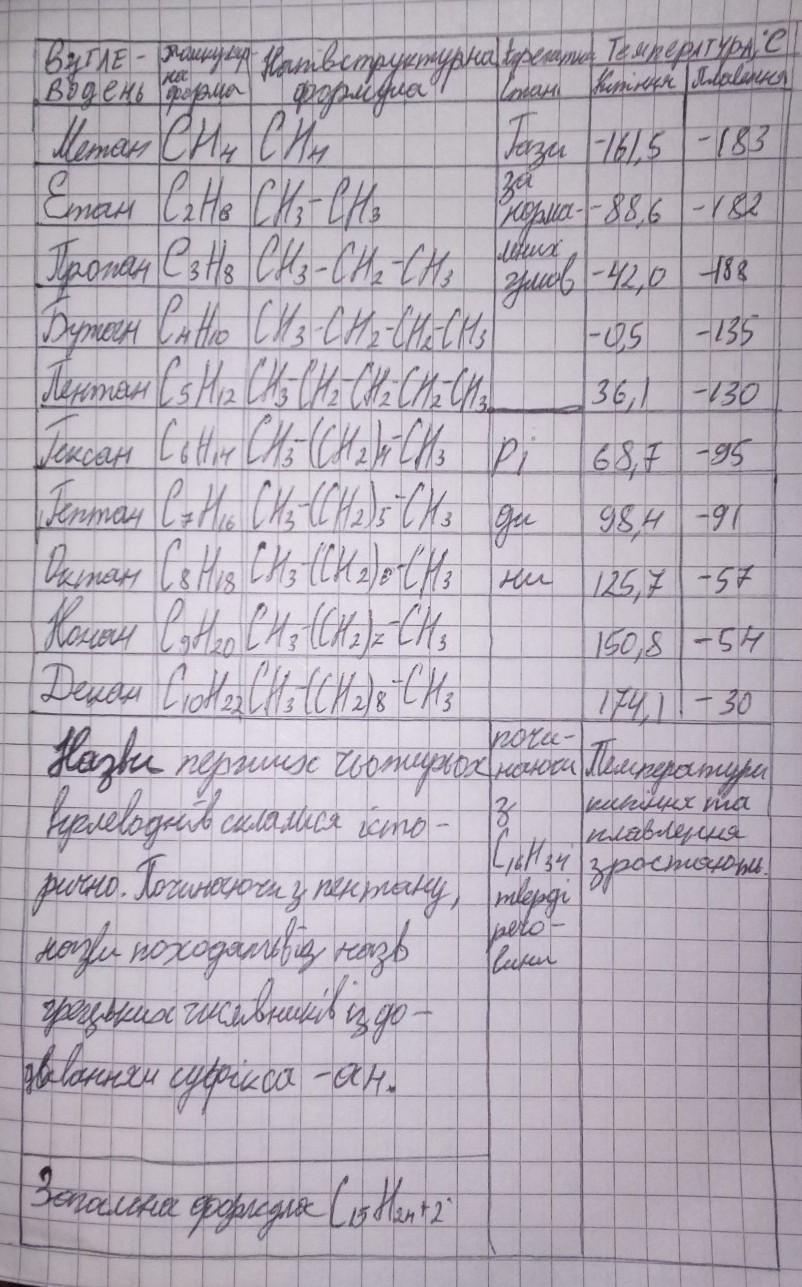 Вугле- Молекуляр- Напівструктурна Агрегатний Температура, °C
водень на форма формула стан Кипіння Плавлення
Метан CH4 CH4 Гази -161,5 -183
за
Етан C2H6 CH3-CH3 норма- -88,6 -182
льних
Пропан C3H8 CH3-CH2-CH3 умов -42,0 -188
Бутан C4H10 CH3-CH2-CH2-CH3 -0,5 -135
Пентан C5H12 CH3-CH2-CH2-CH2-CH3 36,1 -130
Гексан C6H14 CH3-(CH2)4-CH3 Рі 68,7 -95
Гептан C7H16 CH3-(CH2)5-CH3 ди 98,4 -91
Октан C8H18 CH3-(CH2)6-CH3 ни 125,7 -57
Нонан C9H20 CH3-(CH2)7-CH3 150,8 -54
Декан C10H22 CH3-(CH2)8-CH3 174,1 -30
Назви перших чотирьох
вуглеводнів склалися істо-
рично. Починаючи з пентану,
назви походять від назв
грецьких числівників із до-
даванням суфікса -ан.
почи-
наючи
з
C16H34
тверді
речо-
вини
Температури
кипіння та
плавлення
зростають.
Загальна формула C15H2n+2